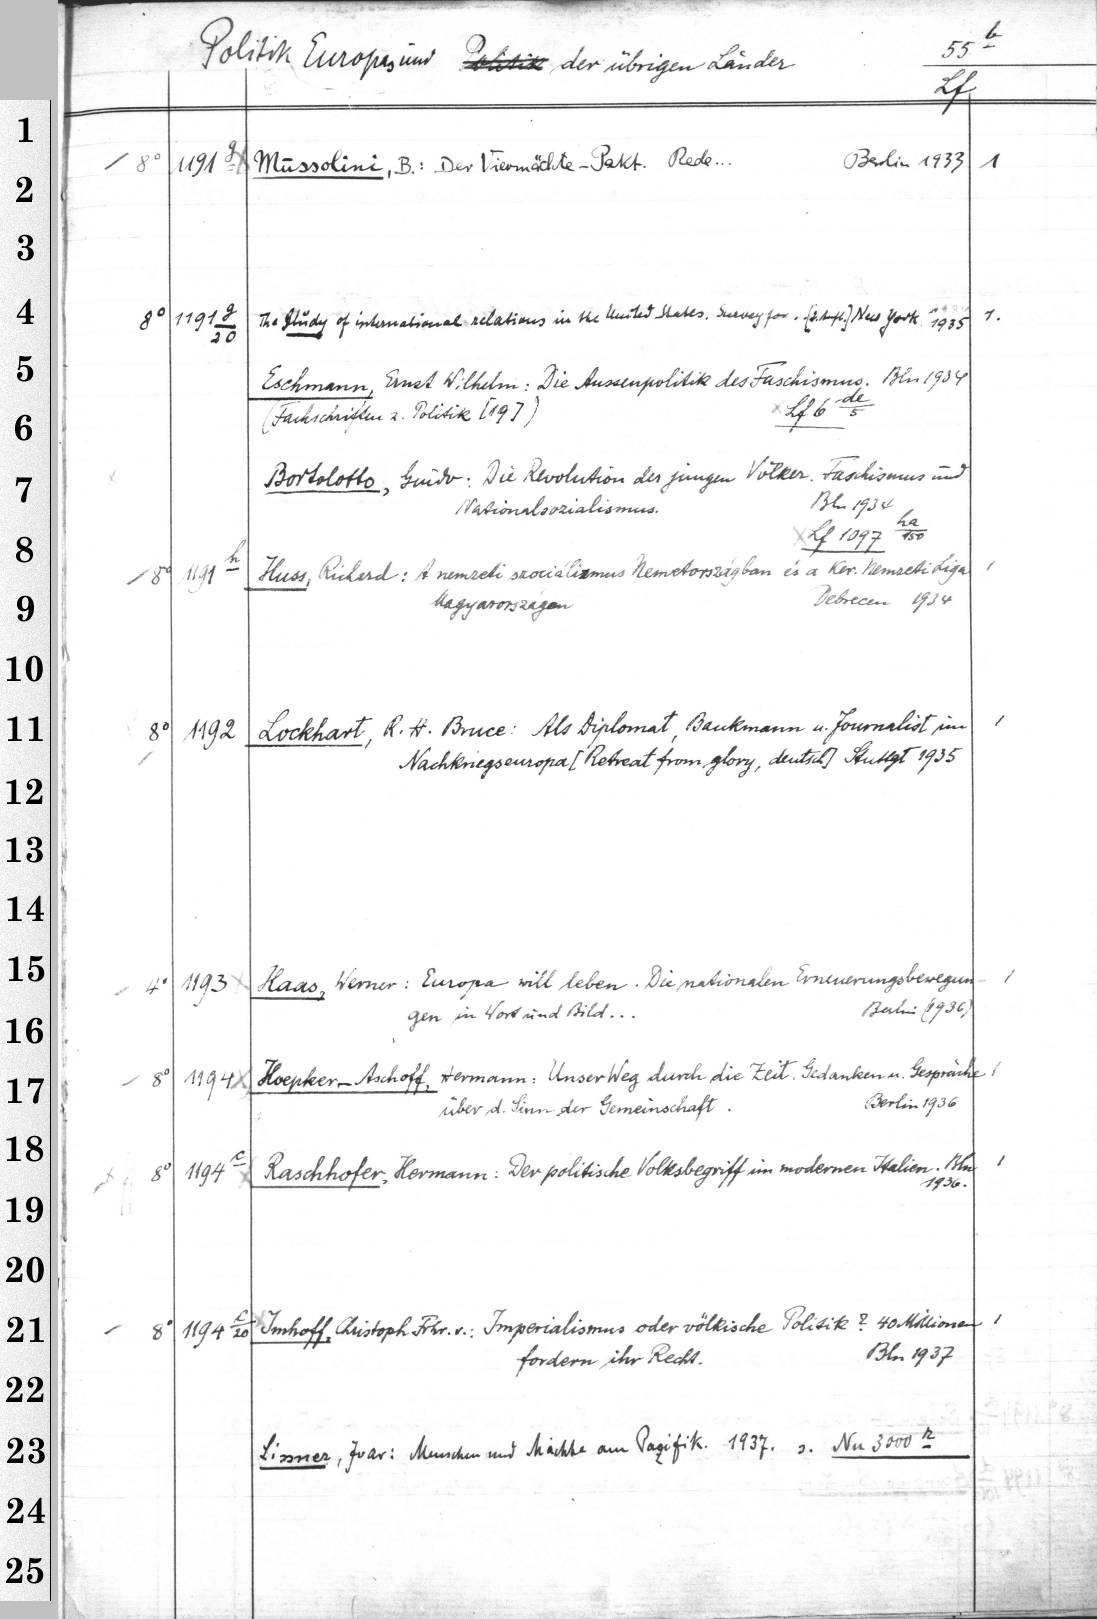 Politik Europas und Politik der übrigen Länder 55 b
Lf
1
2 8° 1191 g Mussolini, B.: Der Viermächte-Pakt. Rede... Berlin 1933 1
3
4 8° 1191 g/20 The Study of international relations in the United States. Survey for. [2. Aufl.] New York 1935 1.
5 Eschmann, Ernst Wilhelm: Die Aussenpolitik des Faschismus. Bln 1934
6 (Fachschriften z. Politik [19]) Lf 6 de/5
7 Bortolotto, Guido: Die Revolution der jungen Völker. Faschismus und
Nationalsozialismus. Bln 1934
8 Lf 1097 ha/150
8° 1191 h Huss, Richard: A nemzeti szocializmus Nemetországban és a Ker. Nemzeti Liga 1
9 Magyarországon Debrecen 1934
10
11 8° 1192 Lockhart, R. H. Bruce: Als Diplomat, Bankmann u. Journalist im 1
Nachkriegseuropa [Retreat from glory, deutsch] Stuttgt 1935
12
13
14
15 4° 1193 Haas, Werner: Europa will leben. Die nationalen Erneuerungsbewegun- 1
16 gen in Wort und Bild... Berlin (1936)
17 8° 1194 Hoepker-Aschoff, Hermann: Unser Weg durch die Zeit. Gedanken u. Gespräche 1
über d. Sinn der Gemeinschaft. Berlin 1936
18 8° 1194 c Raschhofer, Hermann: Der politische Volksbegriff im modernen Italien. Bln 1
1936.
19
20
21 8° 1194 c/20 Imhoff, Christoph Frhr. v.: Imperialismus oder völkische Politik? 40 Millionen 1
fordern ihr Recht. Bln 1937
22
23 Lissner, Ivar: Menschen und Mächte am Pazifik. 1937. s. Nu 3000 n
24
25